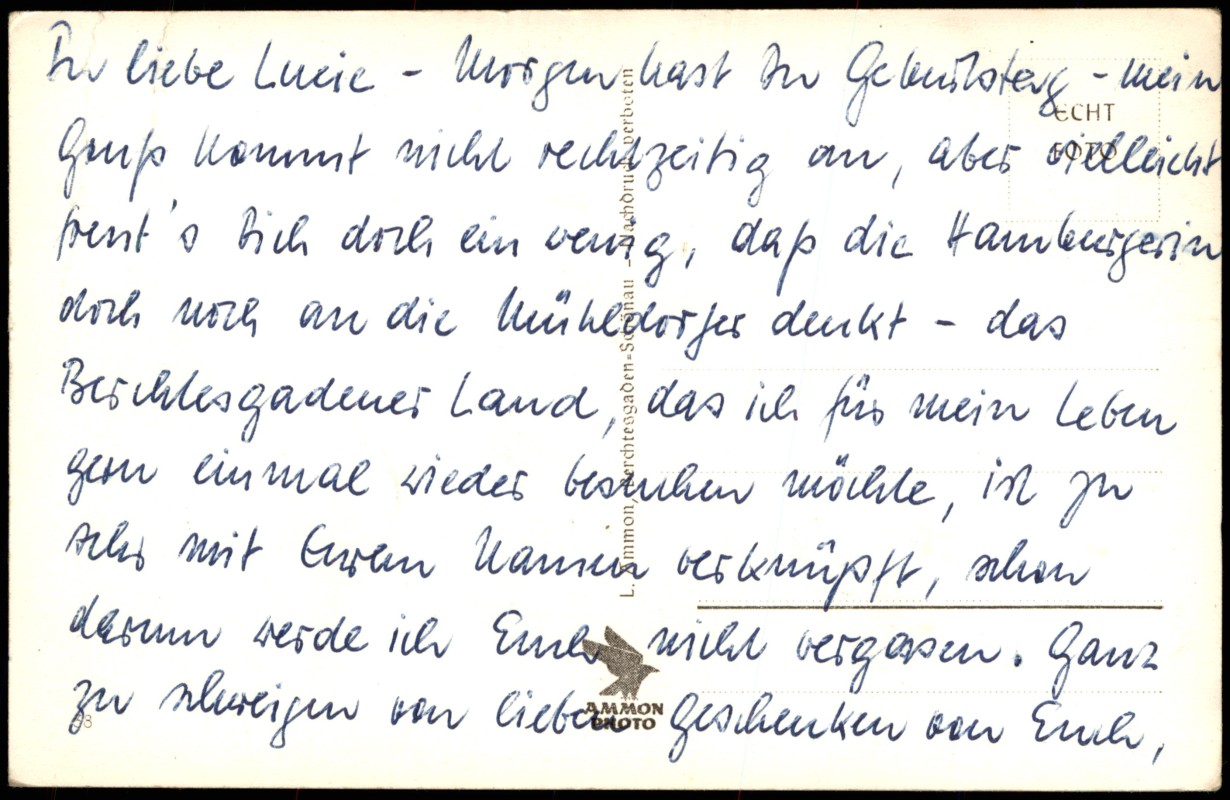 Du liebe Lucie - Morgen hast Du Geburtstag - mein
Gruß kommt nicht rechtzeitig an, aber vielleicht
freut's Dich doch ein wenig, daß die Hamburgerin
doch noch an die Mühldorfer denkt - das
Berchtesgadener Land, das ich für mein Leben
gern einmal wieder besuchen möchte, ist zu
sehr mit Eurem Namen verknüpft, schon
darum werde ich Euch nicht vergessen. Ganz
zu schweigen von lieben Geschenken von Euch,
ECHT
FOTO
L. Ammon, Berchtesgaden=Schönau - Nachdruck verboten
AMMON
PHOTO